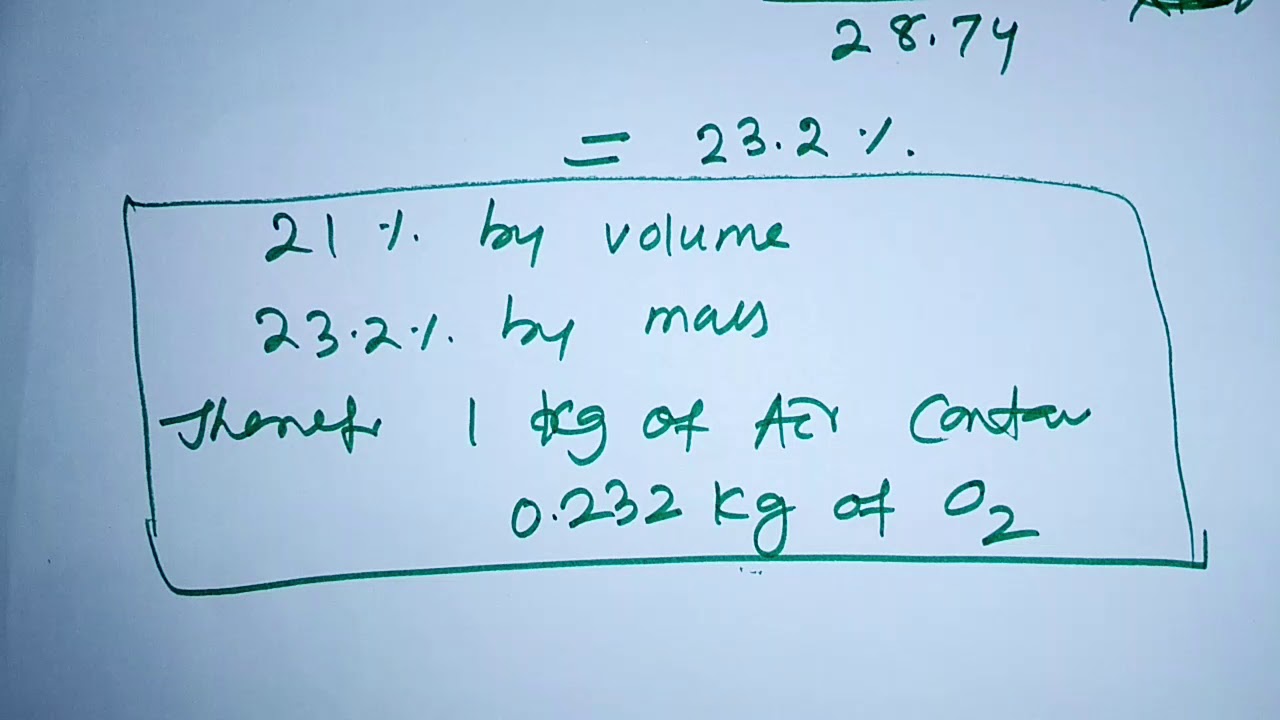 28.74
= 23.2 %.
21 %. by volume
23.2%. by mass
Therefr 1 kg of Air Contain
0.232 kg of O2